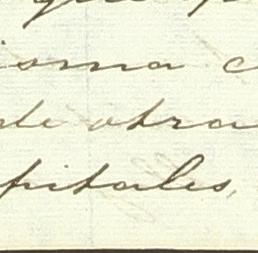 que
isma c
de otra
pitales,